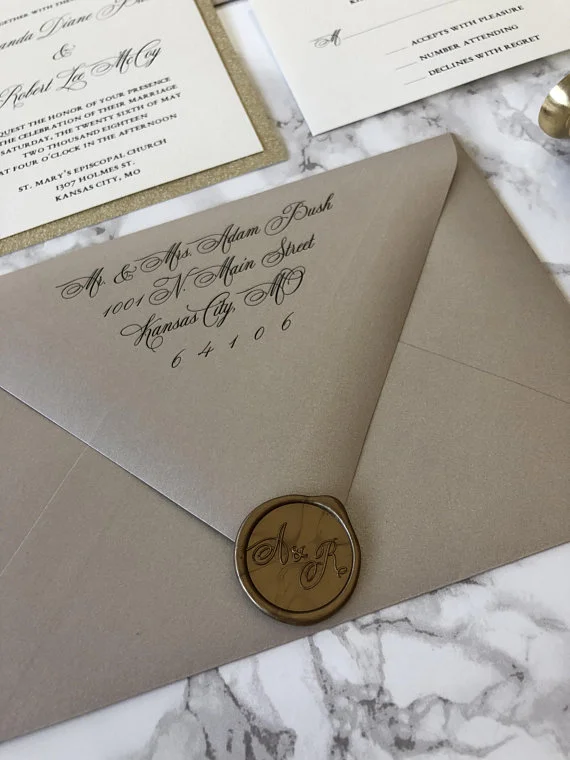 Diane
&
Robert Lee McCoy
THE HONOR OF YOUR PRESENCE
THE CELEBRATION OF THEIR MARRIAGE
SATURDAY, THE TWENTY SIXTH OF MAY
TWO THOUSAND EIGHTEEN
AT FOUR O'CLOCK IN THE AFTERNOON
ST. MARY'S EPISCOPAL CHURCH
1307 HOLMES ST.
KANSAS CITY, MO
M
ACCEPTS WITH PLEASURE
NUMBER ATTENDING
DECLINES WITH REGRET
Mr. & Mrs. Adam Bush
1001 N. Main Street
Kansas City, MO
6 4 1 0 6
A & R